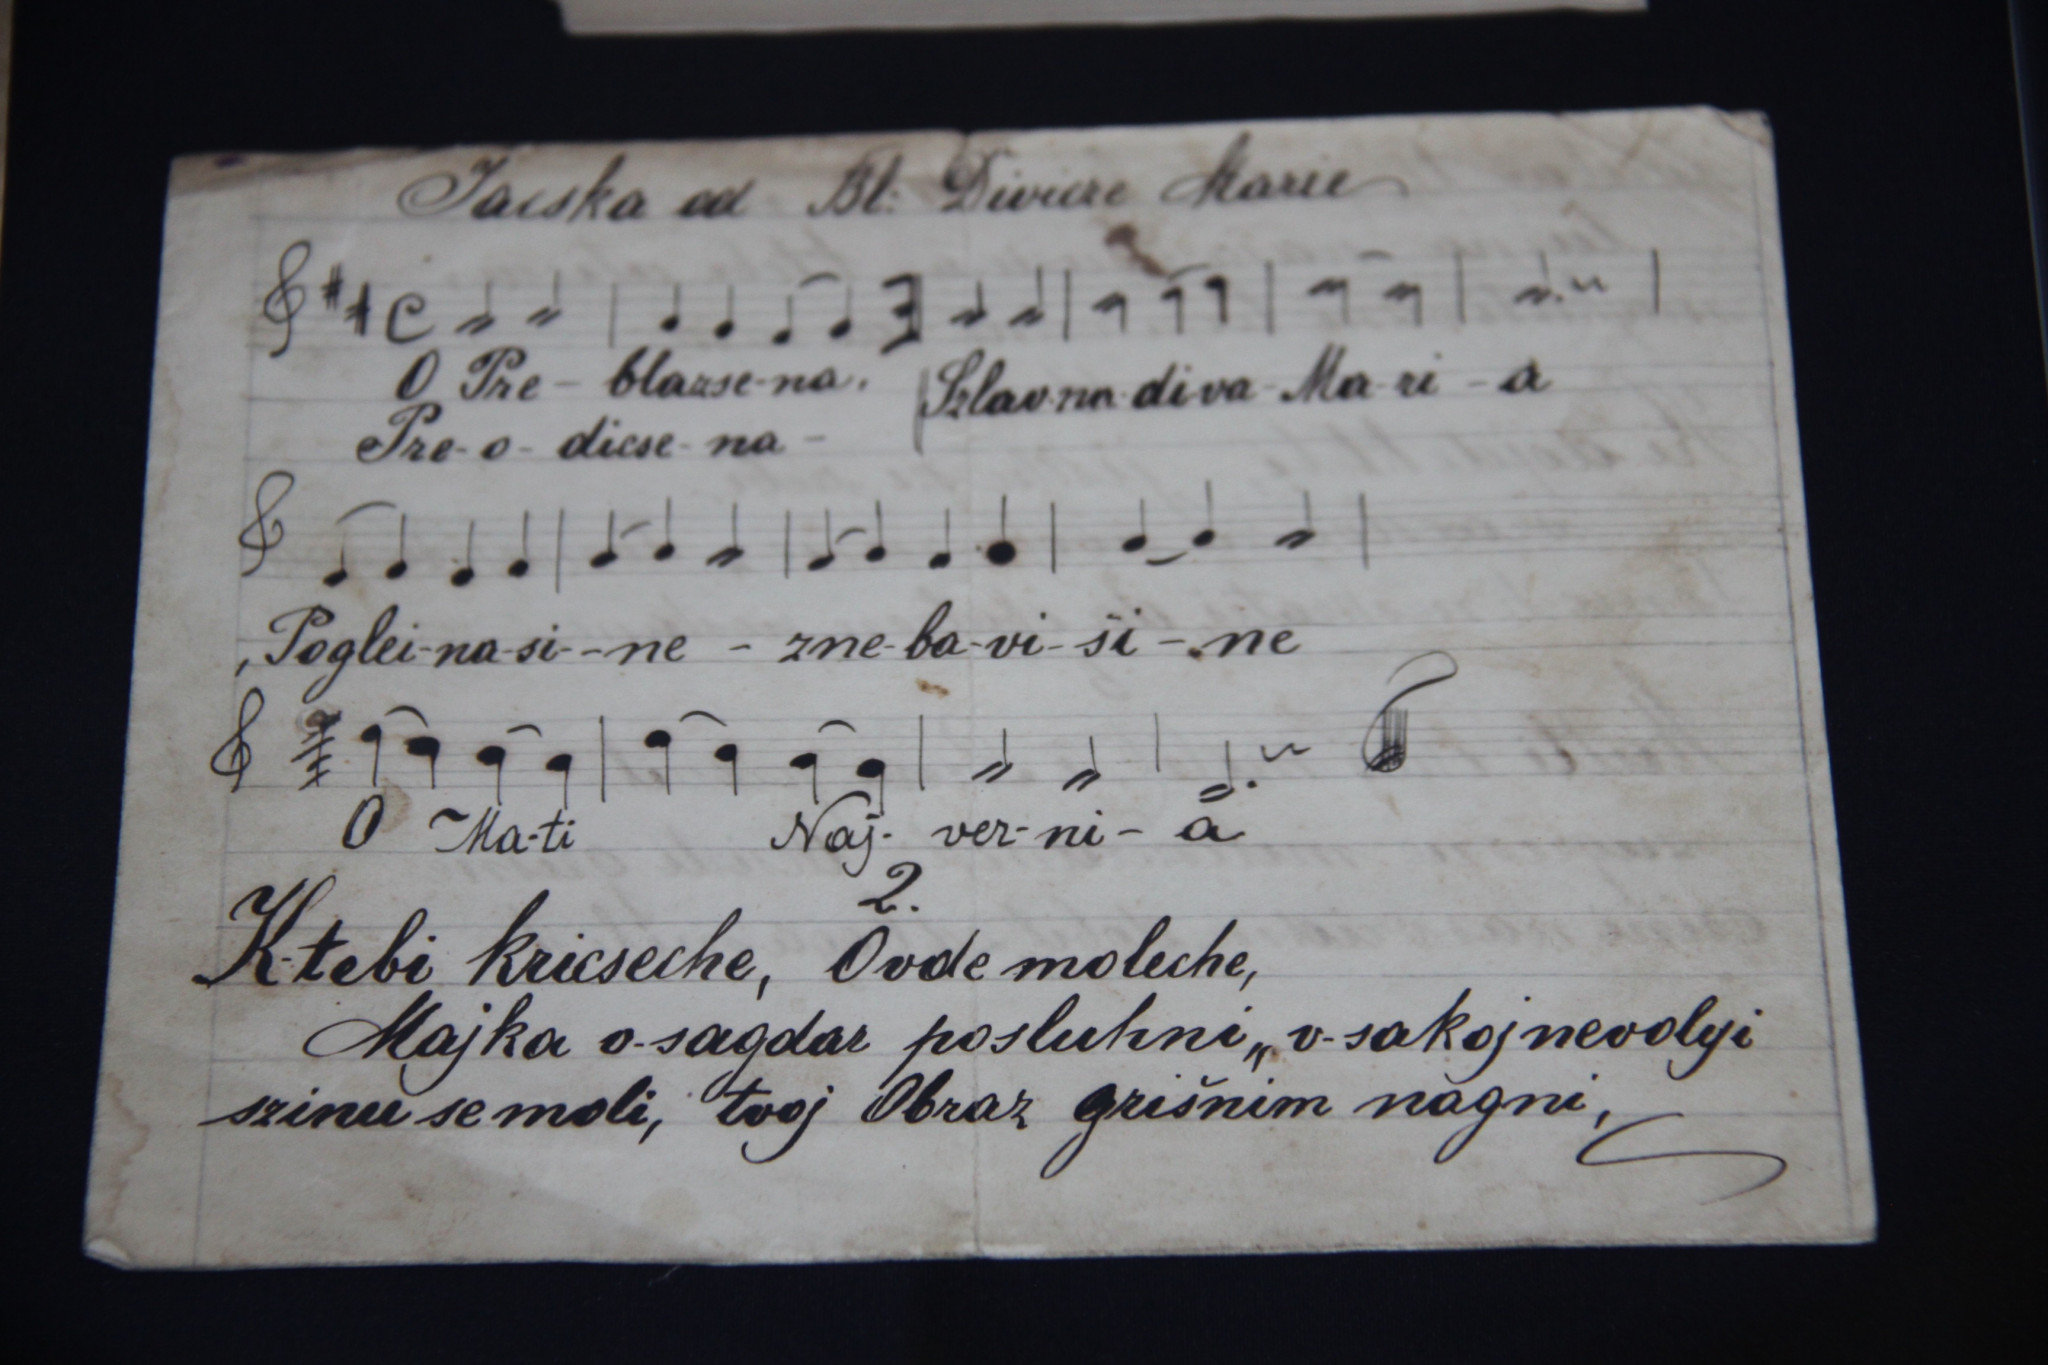 Jacska od Bl: Divicze Marie
O Pre - blazse-na. Szlav-na-di-va-Ma-ri-a
Pre-o-dicse-na-
, Poglei-na-si--ne - zne-ba-vi-ši-ne
O Ma-ti Naj-ver-ni-a
2.
K-tebi kricseche, Ovde moleche,
Majka o-sagdar posluhni„ v-sakoj nevolyi
szinu se moli, tvoj Obraz grišnim nagni,